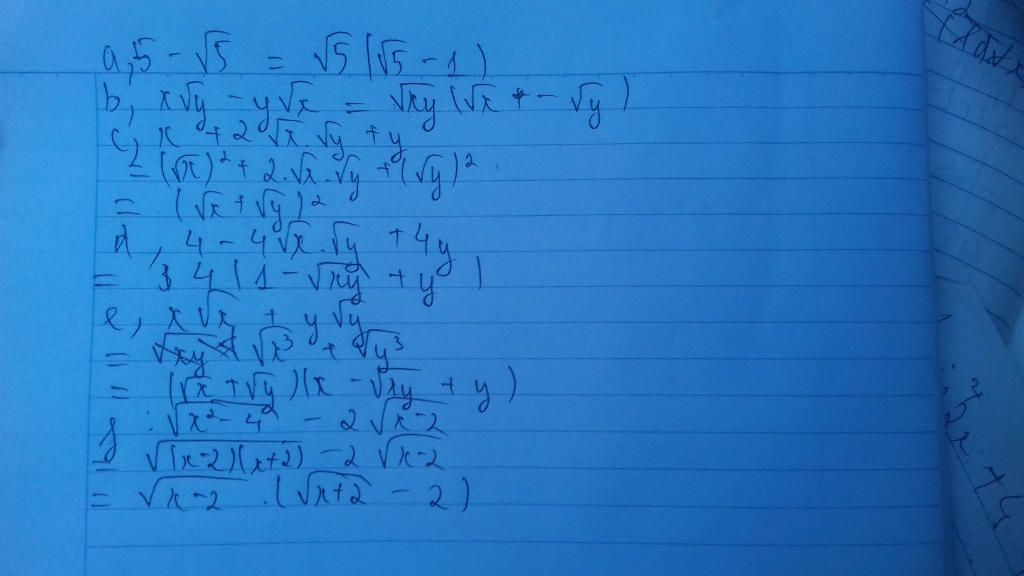 a, 5 - √5 = √5 (√5 - 1)
b, x√y - y√x = √xy (√x - √y)
c, x + 2 √x.√y + y
= (√x)² + 2.√x.√y + (√y)²
= (√x + √y)²
d, 4 - 4√x.√y + 4y
= 4 (1 - √xy + y)
e, x√x + y√y
= √x³ + √y³
= (√x + √y)(x - √xy + y)
f : √x² - 4 - 2 √x-2
= √(x-2)(x+2) - 2 √x-2
= √x-2 .(√x+2 - 2)